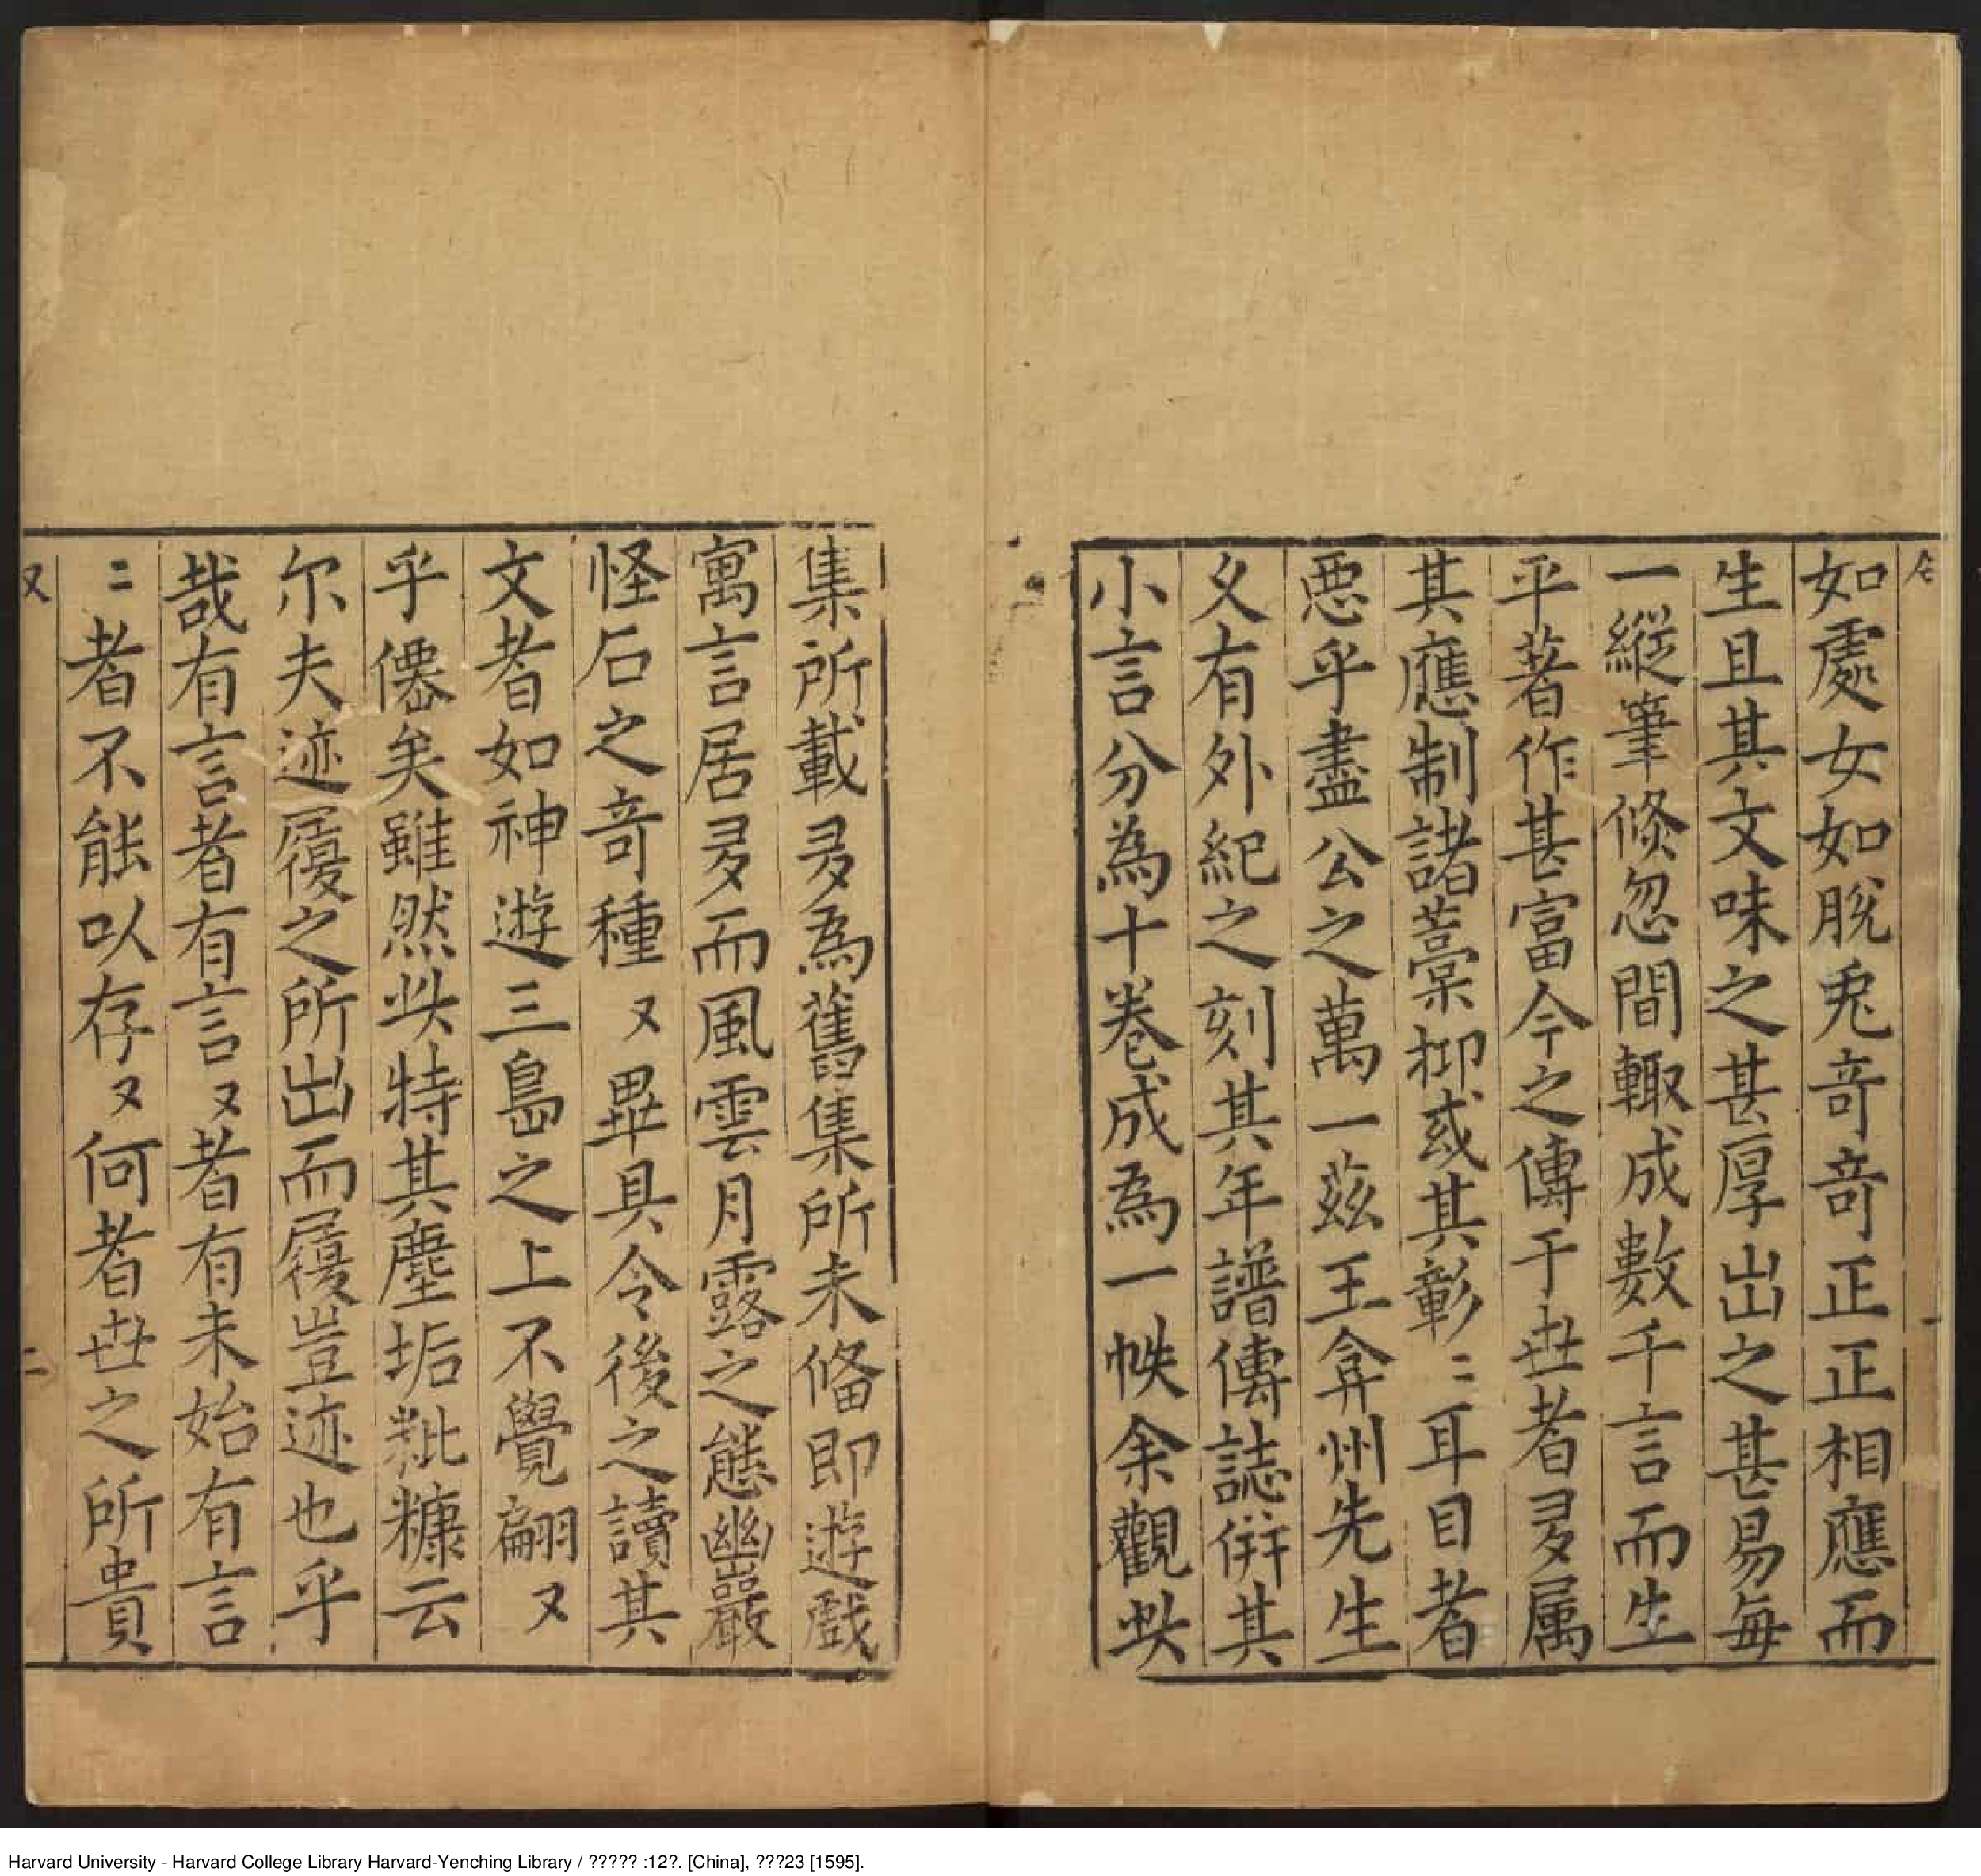 如處女如脫兎竒竒正正相應而
生且其文味之甚厚出之甚易每
一縱筆倏忽間輙成數千言而生
平著作甚富今之傳于丗者多属
其應制諸藁抑或其彰〻耳目者
悪乎盡公之萬一茲王弇州先生
乂有外紀之刻其年譜傳誌併其
小言分為十卷成為一帙余觀此
集所載多為舊集所未俻即遊戲
寓言居多而風雲月露之態幽巖
怪石之竒種又畢具令後之讀其
文者如神遊三島之上不覺翩又
乎僊矣雖然此特其塵垢粃糠云
尔夫迹履之所出而履豈迹也乎
哉有言者有言又者有未始有言
〻者不能以存又何者丗之所貴
Harvard University - Harvard College Library Harvard-Yenching Library / ????? :12?. [China], ???23 [1595].